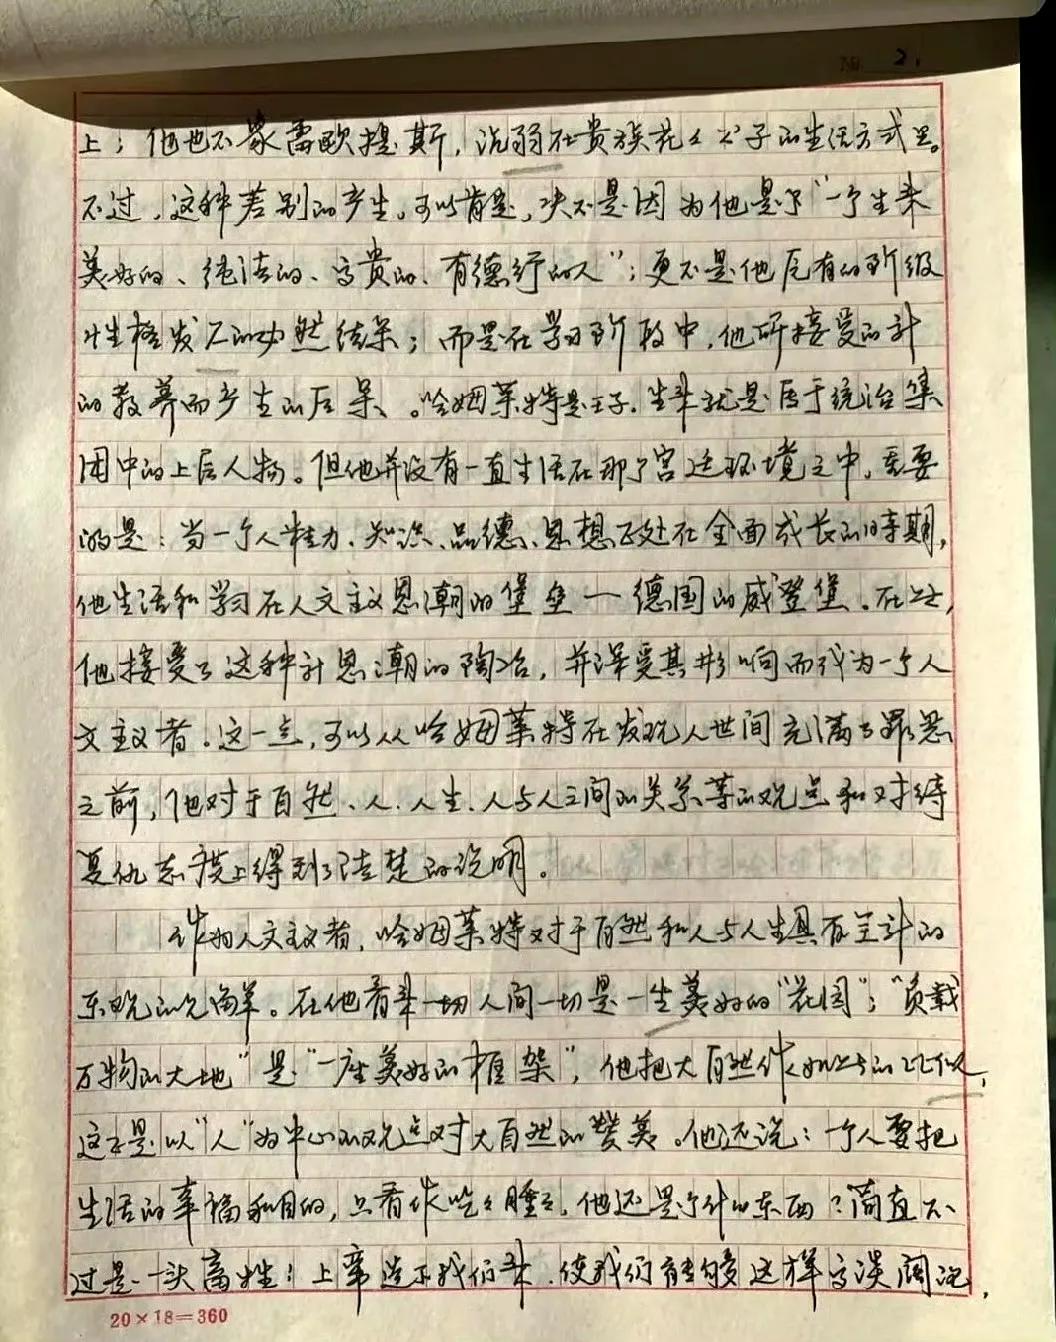 № 2.
上；他也不象雷欧提斯，沉溺在贵族花花公子的生活方式里。
不过，这种差别的产生。可以肯定，决不是因为他是个“一个生来
美好的、纯洁的、高贵的、有德行的人”；更不是他固有的阶级
性格发展的必然结果；而是在学习阶段中，他所接受的
的教养而产生的后果。哈姆莱特是王子，生来就是居于统治集
团中的上层人物。但他并没有一直生活在那个宫廷环境之中，重要
的是：当一个人精力、知识、品德、思想正处在全面成长的时期，
他生活和学习在人文主义思潮的堡垒一德国的威登堡。在这，
他接受了这种新思潮的陶冶，并深受其影响而成为一个人
文主义者。这一点，可以从哈姆莱特在发现人世间充满了罪恶
之前，他对于自然、人、人生、人与人之间的关系等的观点和对待
复仇态度上得到了清楚的说明。
作为人文主义者，哈姆莱特对于自然和人与人生具有全新的
乐观的见解。在他看来一切人间一切是一生美好的“花园”；“负载
万物的大地”是“一座美好的框架”，他把大自然作如此的比似，
这正是以“人”为中心的观点对大自然的赞美。他还说：一个人要把
生活的幸福和目的，只看作吃吃睡睡，他还是个什么东西？简直不
过是一头畜牲！上帝造下我们来，使我们能够这样高谈阔论，
20×18=360